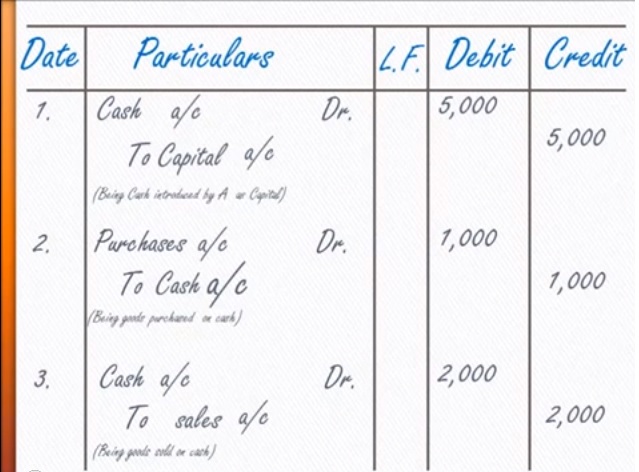 Date Particulars L.F. Debit Credit
1. Cash a/c Dr. 5,000
To Capital a/c 5,000
(Being Cash introduced by A as Capital)
2. Purchases a/c Dr. 1,000
To Cash a/c 1,000
(Being goods purchased on cash)
3. Cash a/c Dr. 2,000
To sales a/c 2,000
(Being goods sold on cash)